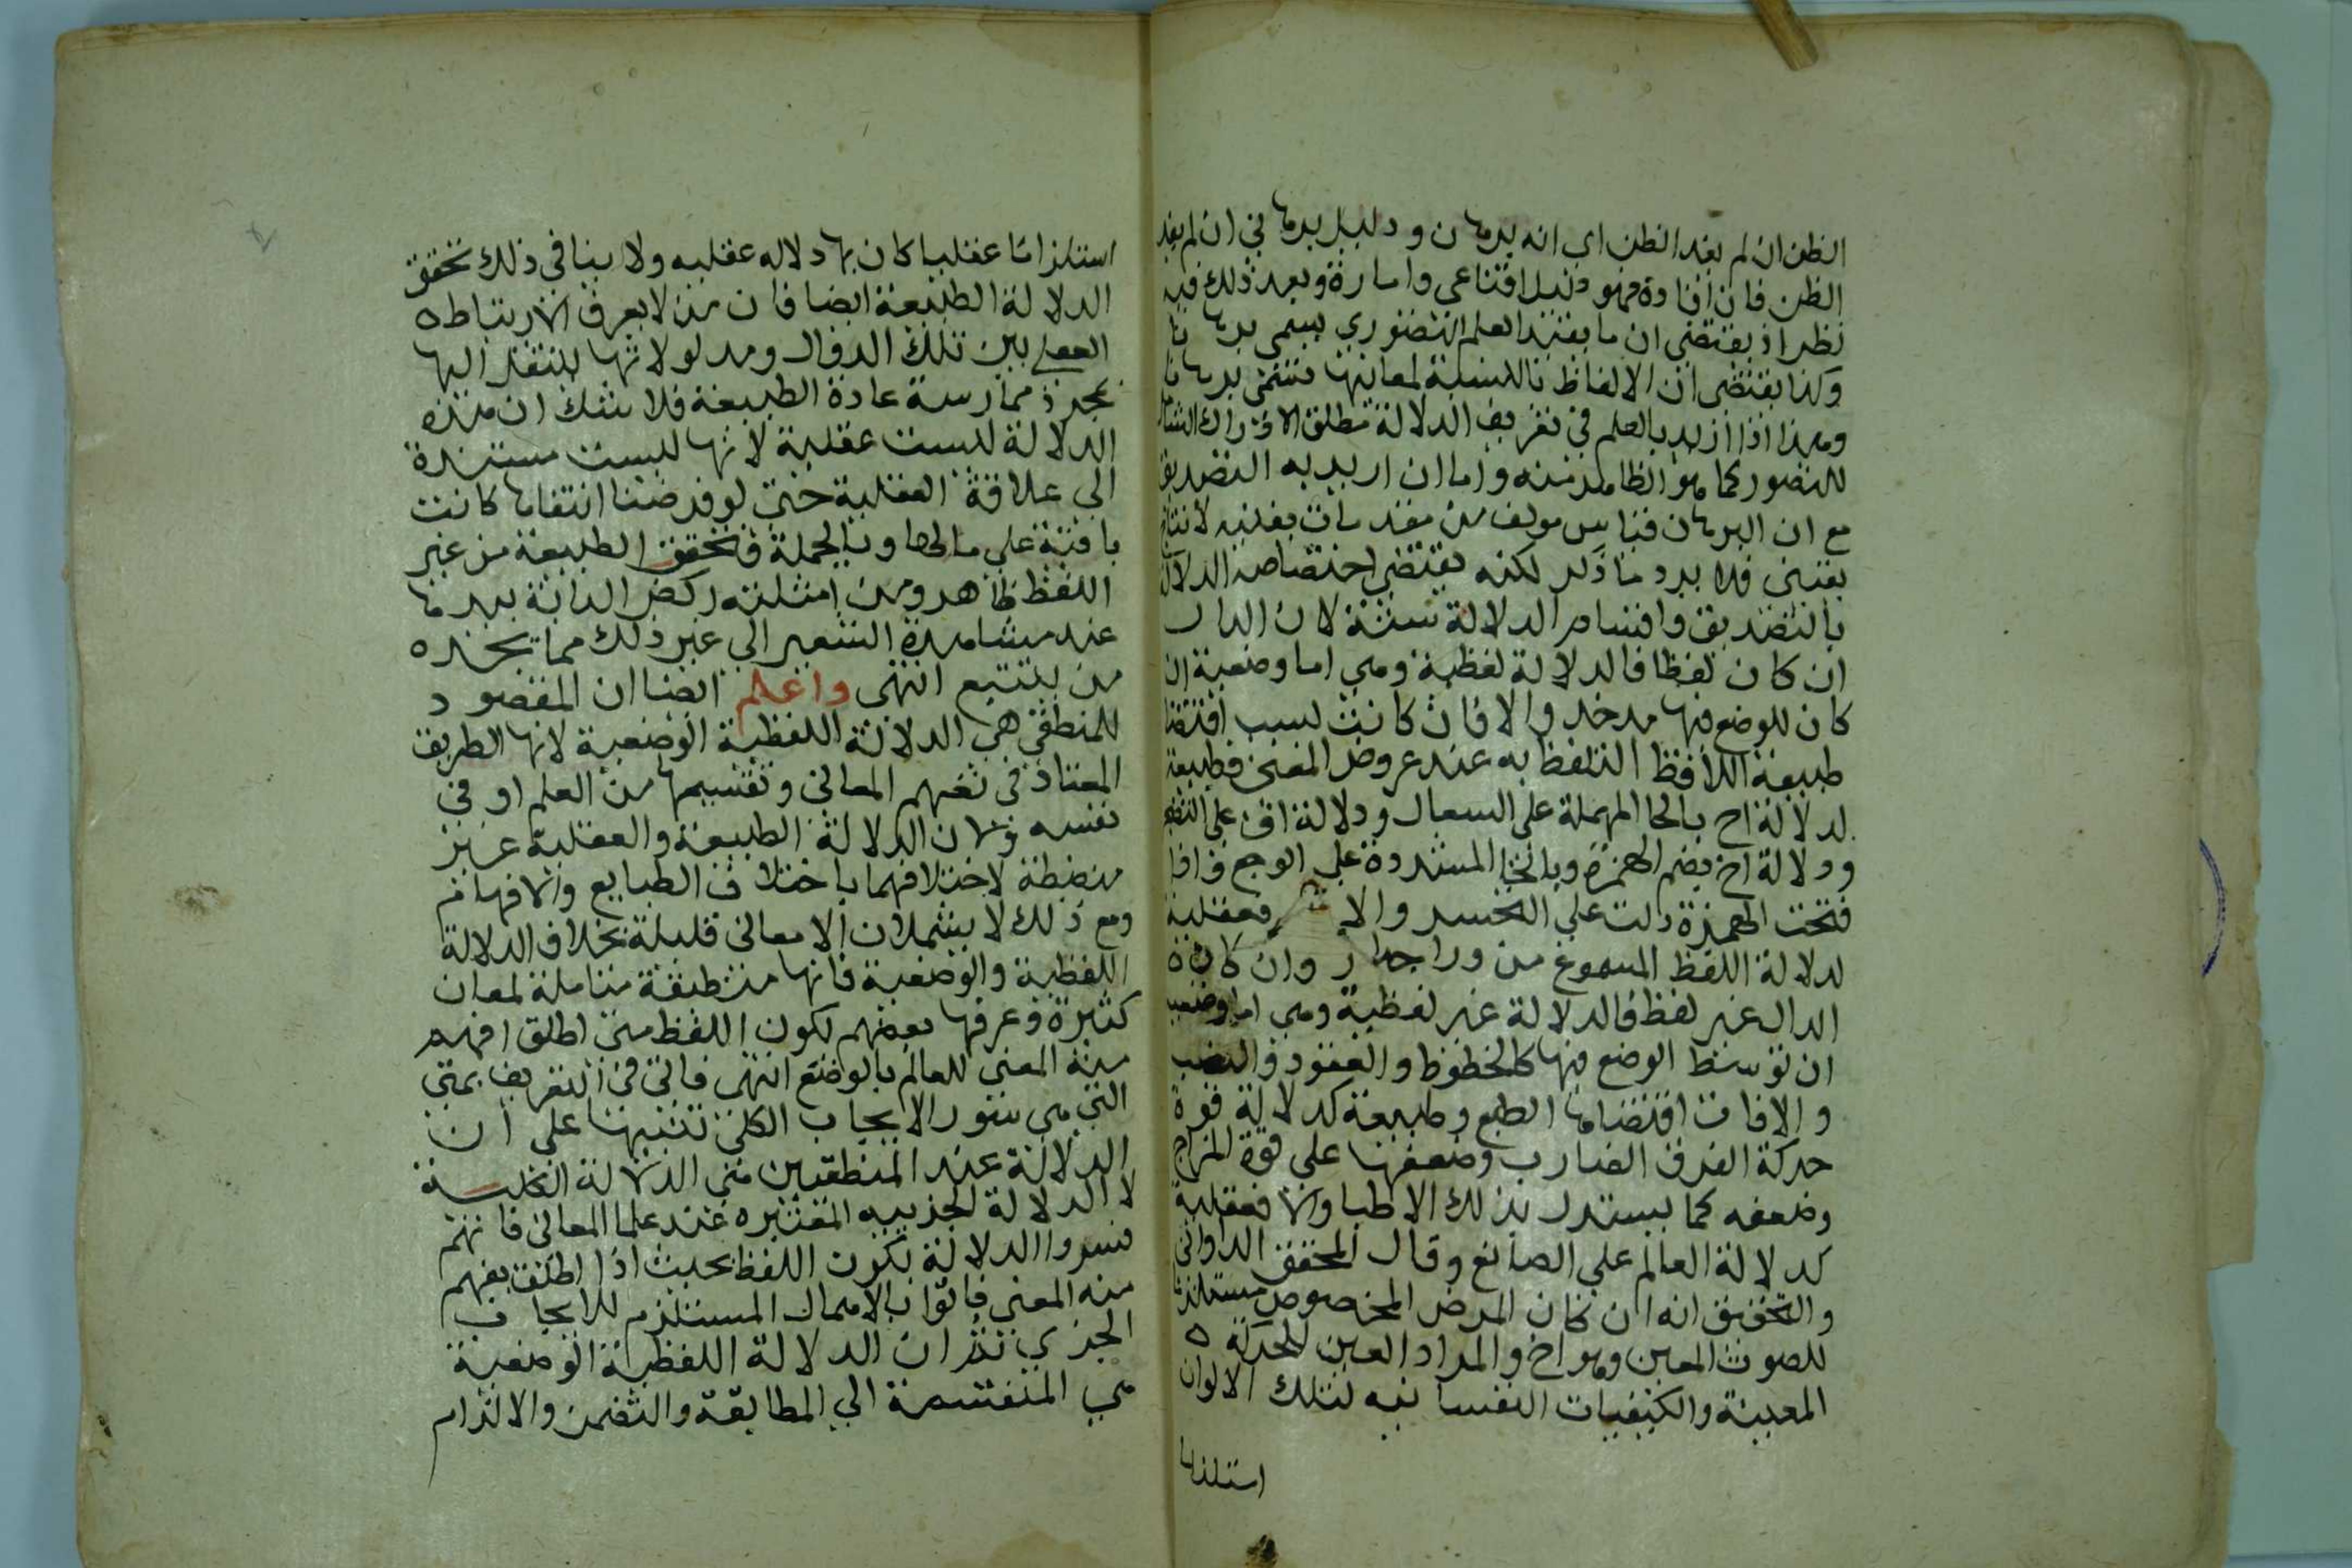 الظن ان لم يفد الظن اي انه برهان ودليل برهاني ان لم يفد
الظن فان افاده فهو دليل اقناعي وامارة وبعد ذلك فيه
نظر اذ يقتضي ان ما يفيد العلم التصوري يسمى برهانا
وكذا يقتضي ان الالفاظ بالنسبة لمعانيها تسمى برهانا
وهذا اذا اريد بالعلم في تعريف الدلالة مطلق الادراك الشامل
للتصور كما هو الظاهر منه واما ان اريد به التصديق
مع ان البرهان قياس مولف من مقدمات يقينيه لانتاج
يقيني فلا يرد ما ذكر لكنه يقتضي اختصاص الدلالة
بالتصديق واقسام الدلالة ستة لان الدال
ان كان لفظا فالدلالة لفظية وهي اما وضعية ان
كان للوضع فيها مدخل والا فان كانت لسبب اقتضا
طبيعة اللافظ التلفظ به عند عروض المعنى فطبيعة
لدلالة اح بالحا المهملة على السعال ودلالة اف على التضجر
ودلالة اخ بضم الهمزة وبالخا المشددة على الوجع فاذا
فتحت الهمزة دلت على التحسر والا فعقلية
لدلالة اللفظ المسموع من ورا جدار وان كان
الدال غير لفظ فالدلالة غير لفظية وهي اما وضعية
ان توسط الوضع فيها كالخطوط والعقود والنصب
والا فان اقتضاها الطبع وطبيعة كدلالة قوة
حركة العرق الضارب وضعفها على قوة المزاج
وضعفه كما يستدل بذلك الاطبا والا فعقلية
كدلالة العالم على الصانع وقال المحقق الدواني
والتحقيق انه ان كان المرض المخصوص مستلزما
للصوت المعين وهو اخ والمراد العين للحركة
المعينة والكيفيات النفسانيه لتلك الالوان
استلزاما
استلزاما عقليا كان بها دلاله عقليه ولا ينافي ذلك تحقق
الدلالة الطبيعة ايضا فان من لا يعرف الارتباط
العقلي بين تلك الدوال ومدلولاتها لينتقل اليها
بمجرد ممارسة عادة الطبيعة فلا شك ان هذه
الدلالة ليست عقلية لانها ليست مستندة
الى علاقة العقلية حتى لو فرضنا انتفاها كانت
باقية على حالها وبالجملة فتحقق الطبيعة من غير
اللفظ ظاهر ومن امثلته ركض الدابة بيدها
عند مشاهدة الشعير الى غير ذلك مما يجده
من يتتبع انتهى واعلم ايضا ان المقصود
للمنطقي هي الدلالة اللفظية الوضعية لانها الطريق
المعتاد في تفهم المعاني وتقسيمها من العلم او في
نفسه ولان الدلالة الطبيعة والعقلية غير
منضبطة لاختلافهما باختلاف الطبايع والافهام
ومع ذلك لا يشملان الا معاني قليلة بخلاف الدلالة
اللفظية والوضعية فانها منضبطة متناملة لمعان
كثيرة وعرفها بعضهم بكون اللفظ متى اطلق افهم
منه المعنى للعالم بالوضع انتهى فاتى في التعريف بمتى
التي هي سور الايجاب الكلي تنبيها على ان
الدلالة عند المنطقيين هي الدلالة الكلية
لا الدلالة الجزييه المعتبره عند علما المعاني فانهم
فسروا الدلالة بكون اللفظ بحيث اذا اطلق يفهم
منه المعنى فاتوا بالاهمال المستلزم للايجاب
الجزي ثم ان الدلالة اللفظية الوضعية
هي المنقسمة الى المطابقة والتضمن والالتزام